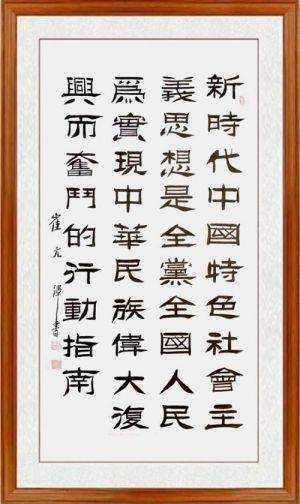 新時代中國特色社會主
義思想是全黨全國人民
爲實現中華民族偉大復
興而奮鬥的行動指南
崔 書